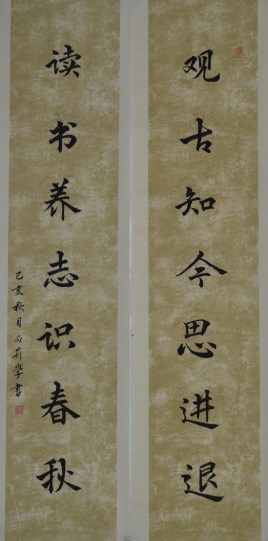 观古知今思进退
读书养志识春秋
己亥秋月